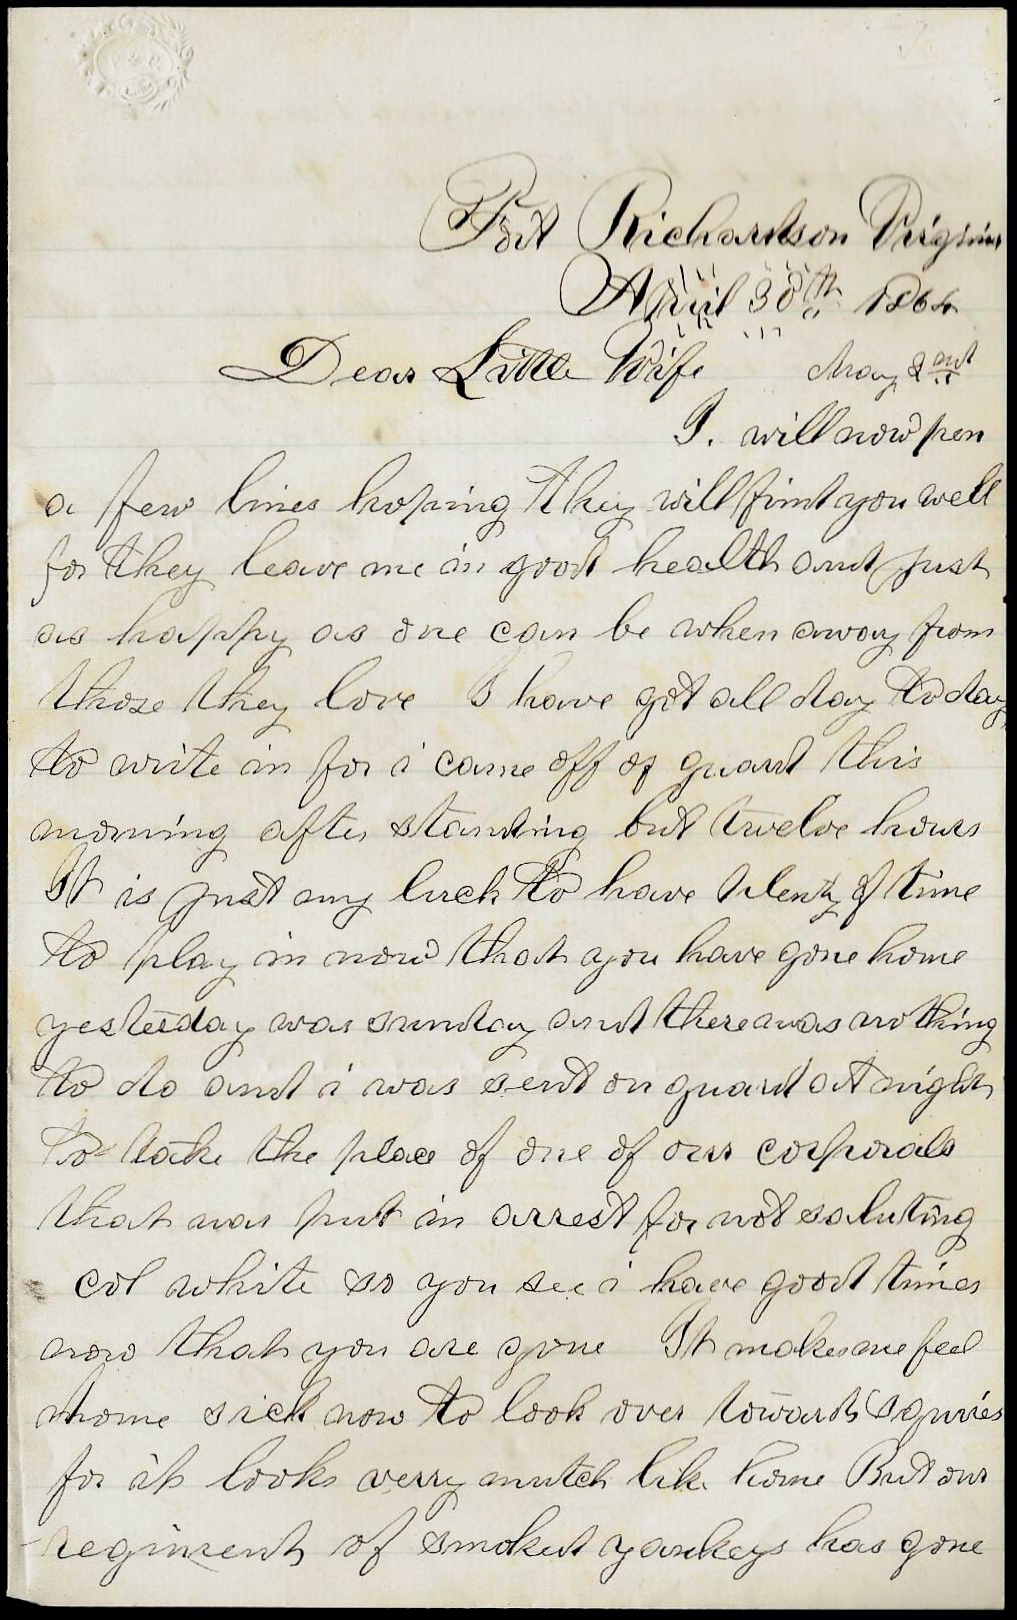 Fort Richardson Virginia
April 30th 1864
Dear Little Wife May 2ant
I. will now pen
a few lines hoping they will fint you well
for they leave me in goot health ant just
as happy as one can be when away from
those they love I have got all day to day
to write in for i came off of guart this
morning after stanting but twelve hours
It is just my luck to have plenty of time
to play in now that you have gone home
yesterday was suntay ant there was nothing
to do ant i was sent on guart at night
to take the place of one of our corporals
that was put in arrest for not saluting
col white so you see i have goot times
now that you are gone It makes me feel
home sick now to look over towarts Squires
for it looks verry mutch like home But our
regiment of smoket yankeys has gone